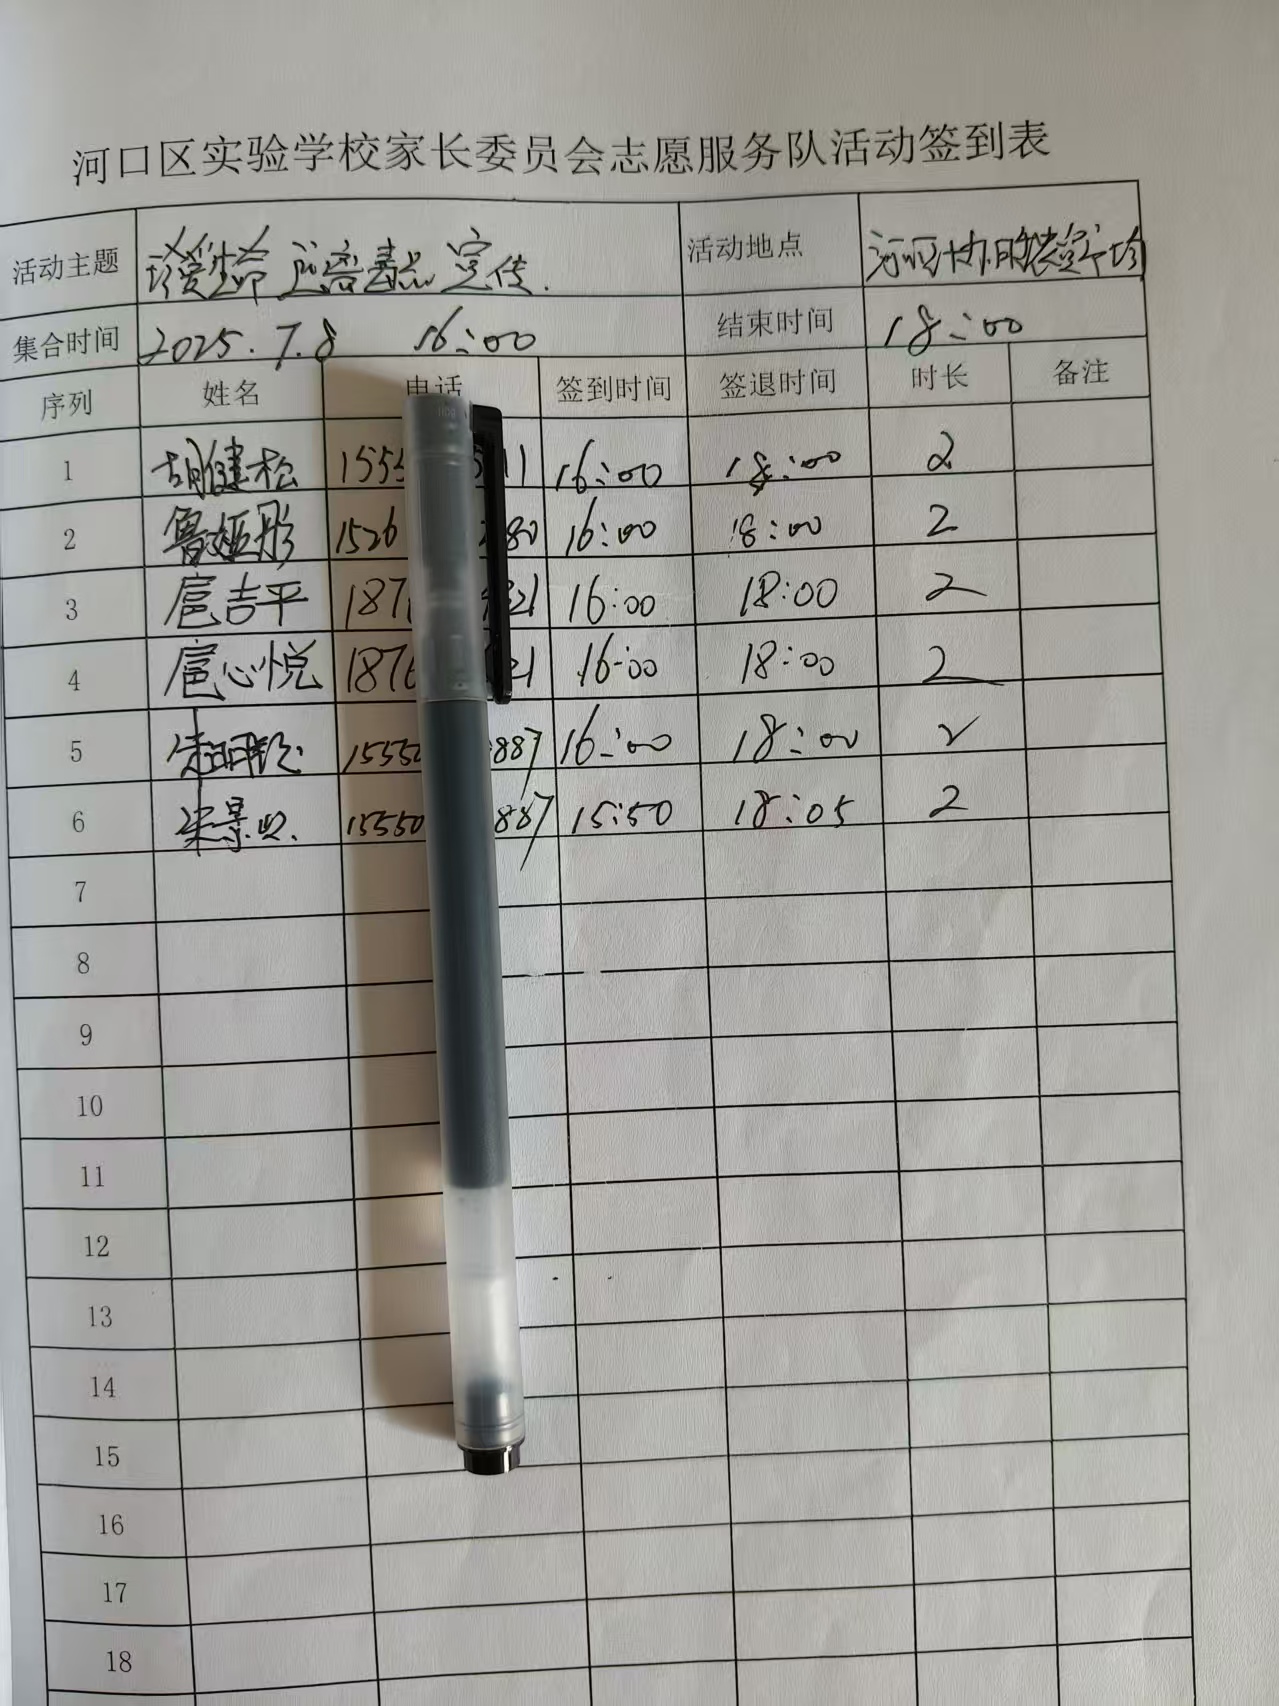 河口区实验学校家长委员会志愿服务队活动签到表
活动主题 珍爱生命 远离毒品 宣传. 活动地点
集合时间 2025.7.8 16:00 结束时间 18:00
序列 姓名 电话 签到时间 签退时间 时长 备注
1 胡健松 155 11 16:00 18:00 2
2 鲁姬彤 1526 80 16:00 18:00 2
3 扈吉平 187 21 16:00 18:00 2
4 扈心悦 1876 21 16:00 18:00 2
5 1555 887 16:00 18:00 2
6 15550 887 15:50 18:05 2
7
8
9
10
11
12
13
14
15
16
17
18